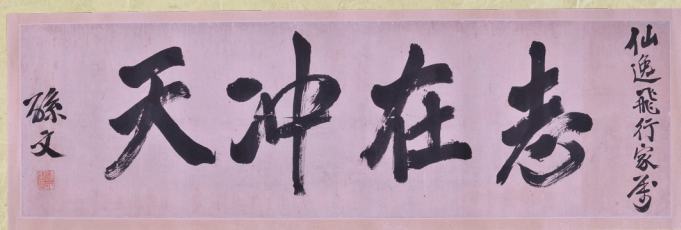 仙逸飛行家
志在冲天
孫文